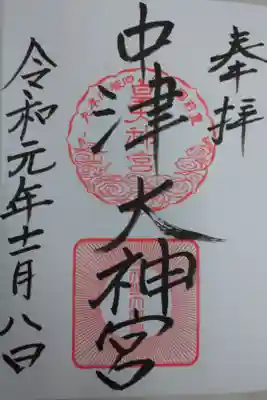 奉拝
中津大神宮
令和元年十一月八日